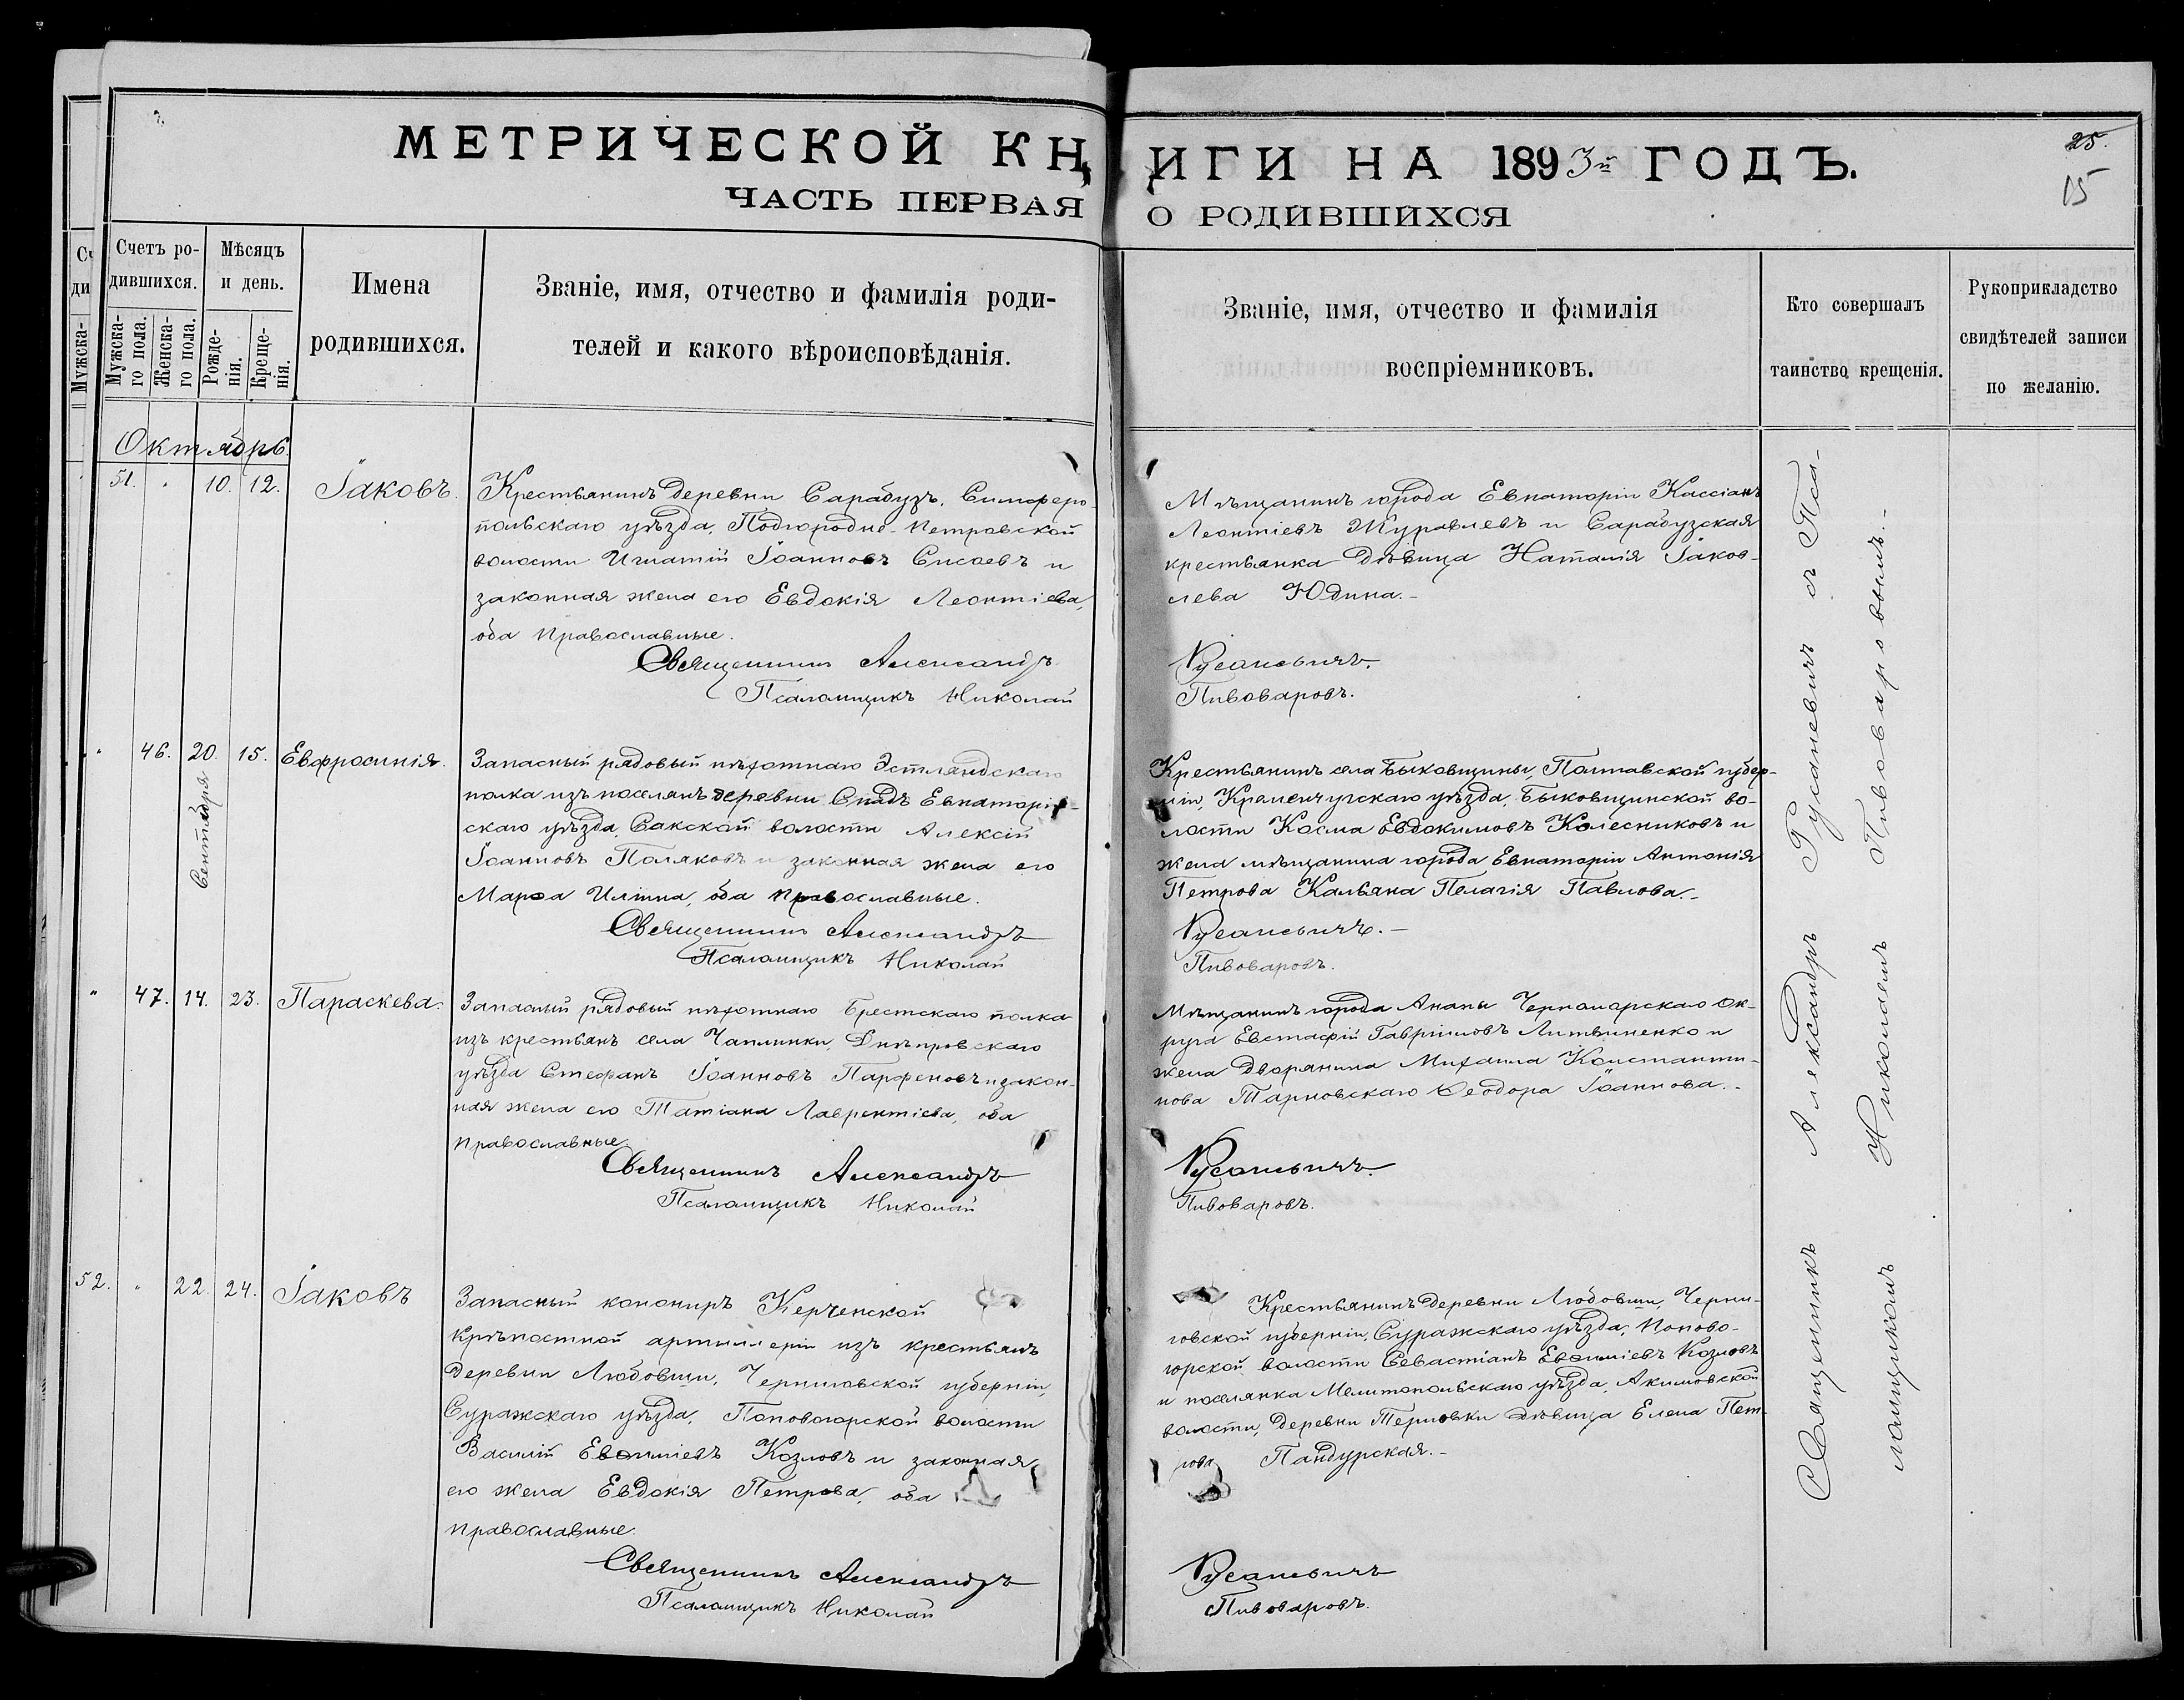 МЕТРИЧЕСКОЙ КНИГИ НА 1893й ГОДЪ.
ЧАСТЬ ПЕРВАЯ О РОДИВШИХСЯ
25.
15
Счетъ родившихся.
Мужскаго пола.
Женскаго пола.
Мѣсяцъ и день.
Рожденія.
Крещенія.
Имена родившихся.
Званіе, имя, отчество и фамилія роди-
телей и какого вѣроисповѣданія.
Званіе, имя, отчество и фамилія
воспріемниковъ.
Кто совершалъ
таинство крещенія.
Рукоприкладство
свидѣтелей записи
по желанію.
Октябрь.
51. " 10. 12. Іаковъ.
Крестьянинъ деревни Сарабузъ, Симферо-
польскаго уѣзда, Подгородне-Петровской
волости Игнатій Іоанновъ и
законная жена его Евдокія Леонтіева,
оба православные.
Священникъ Александръ
Псаломщикъ Николай
Мѣщанинъ города Евпаторіи Кассіанъ
Леонтіевъ Журавлевъ и Сарабузская
крестьянка дѣвица Наталія Іаков-
лева Юдина.-
Русаневичъ.
Пивоваровъ.
" 46. 20. Сентября 15. Евфросинія.
Запасный рядовый пѣхотнаго Эстляндскаго
полка изъ поселянъ деревни Спатъ Евпаторій-
скаго уѣзда, Сакской волости Алексій
Іоанновъ Поляковъ и законная жена его
Марѳа Иліина, оба православные.
Священникъ Александръ
Псаломщикъ Николай
Крестьянинъ села Быковщины, Полтавской губер-
ніи, Кременчугскаго уѣзда, Быковщинской во-
лости Косма Евдокимовъ Колесниковъ и
жена мѣщанина города Евпаторіи Антонія
Петрова Кальяна Пелагія Павлова.-
Русаневичъ.-
Пивоваровъ.
" 47. 14. 23. Параскева.
Запасный рядовый пѣхотнаго Брестскаго полка
изъ крестьянъ села Чаплинки, Днѣпровскаго
уѣзда Стефанъ Іоанновъ Парфеновъ и закон-
ная жена его Татіана Лаврентіева, оба
православные.
Священникъ Александръ
Псаломщикъ Николай
Мѣщанинъ города Анапы Черноморскаго Ок-
руга Евстафій Гавріиловъ Литвиненко и
жена дворянина Михаила Константи-
нова Тарновскаго Ѳеодора Іоаннова.-
Русаневичъ.
Пивоваровъ.
52. " 22. 24. Іаковъ
Запасный канониръ Керченской
крѣпостной артиллеріи изъ крестьянъ
деревни Любовши, Черниговской губерніи,
Суражскаго уѣзда, Поповогорской волости
Василій Евѳиміевъ Козловъ и законная
его жена Евдокія Петрова, оба
православные.
Священникъ Александръ
Псаломщикъ Николай
Крестьянинъ деревни Любовши, Черни-
говской губерніи, Суражскаго уѣзда, Попово-
горской волости Севастіанъ Евѳиміевъ Козловъ
и поселянка Мелитопольскаго уѣзда, Акимовской
волости, деревни Терновки дѣвица Елена Пет-
рова Пандурская.-
Русаневичъ
Пивоваровъ.
Священникъ Александръ Русаневичъ съ Пса-
ломщикомъ Николаемъ Пивоваровымъ.-